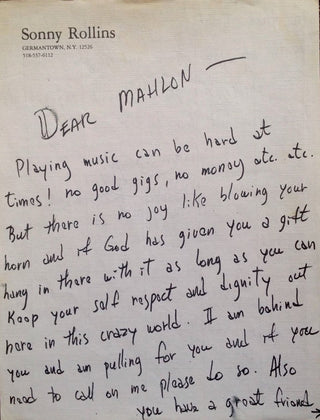 Sonny Rollins
GERMANTOWN, N.Y. 12526
518-537-6112
DEAR MAHLON —
Playing music can be hard at
times! no good gigs, no money etc. etc.
But there is no joy like blowing your
horn and if God has given you a gift
hang in there with it as long as you can
Keep your self respect and dignity out
here in this crazy world. I am behind
you and am pulling for you and if you
need to call on me please do so. Also
you have a great friend